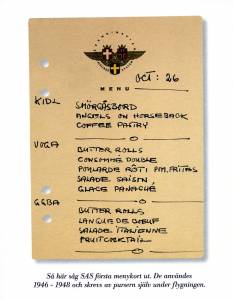 OCT: 26
MENU
KIDL
SMÖRGÅSBORD
ANGELS ON HORSEBACK
COFFEE PASTRY
VOGA
BUTTER ROLLS
CONSOMMÉ DOUBLE
POULARDE RÔTI POM. FRITES
SALADE SAISON
GLACE PANACHÉ
GSBA
BUTTER ROLLS
LANGUE DE BŒUF
SALADE ITALIENNE
FRUITCOCKTAIL
Så här såg SAS första menykort ut. De användes
1946 - 1948 och skrevs av pursern själv under flygningen.